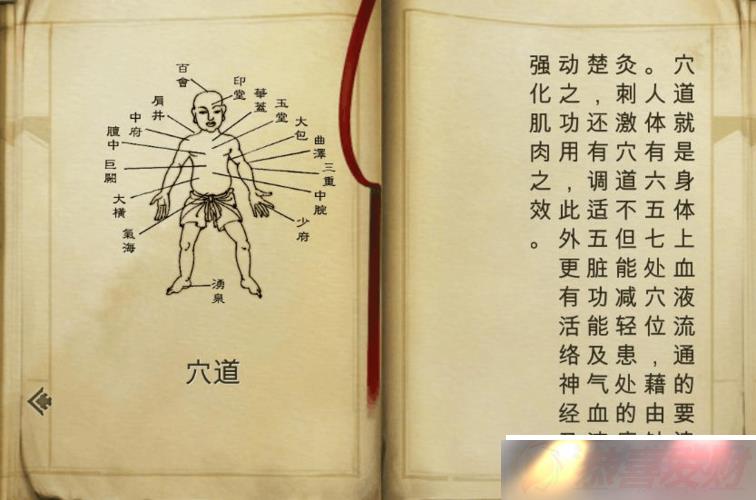 百會
印堂
華蓋
玉堂
大包
曲澤
三重
中脘
少府
肩井
中府
膻中
巨闕
大橫
氣海
湧泉
穴道
穴道就是身体上血液流通的要
。人体有六五七处穴位，藉由
灸刺激穴道不但能减轻患处的
楚，还有调适五脏功能及气血
动之功用，此外更有活络神经
强化肌肉之效。